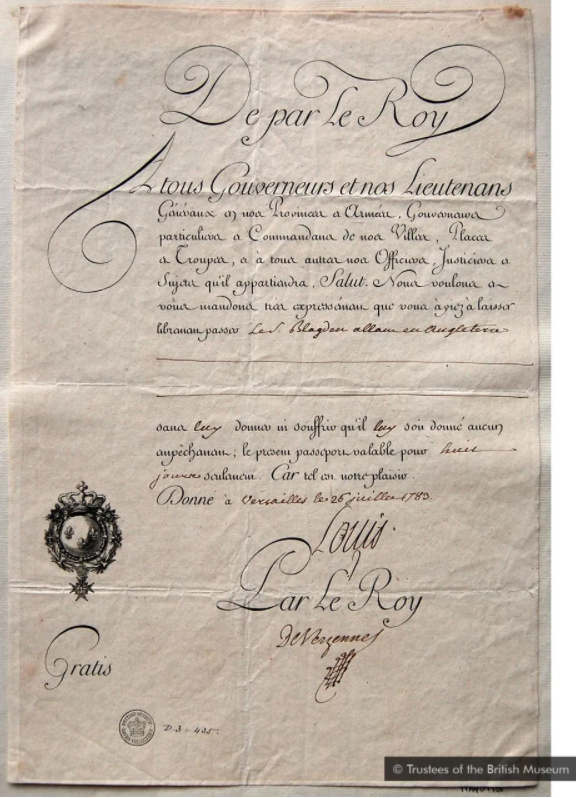 De par Le Roy
A tous Gouverneurs et nos Lieutenans
Généraux en nos Provinces et Armées, Gouverneurs
particuliers et Commandans de nos Villes, Places
et Troupes, et à tous autres nos Officiers, Justiciers et
Sujets qu'il appartiendra, Salut. Nous voulons et
vous mandons très expressément que vous ayiez à laisser
librement passer Le S. Blagden allant en Angleterre
sans luy donner ni souffrir qu'il luy soit donné aucun
empêchement; le present passeport valable pour huit
jours seulement. Car tel est notre plaisir.
Donné à Versailles le 26 juillet 1783.
Louis
Par Le Roy
De Vergennes
Gratis
D.3-435
© Trustees of the British Museum